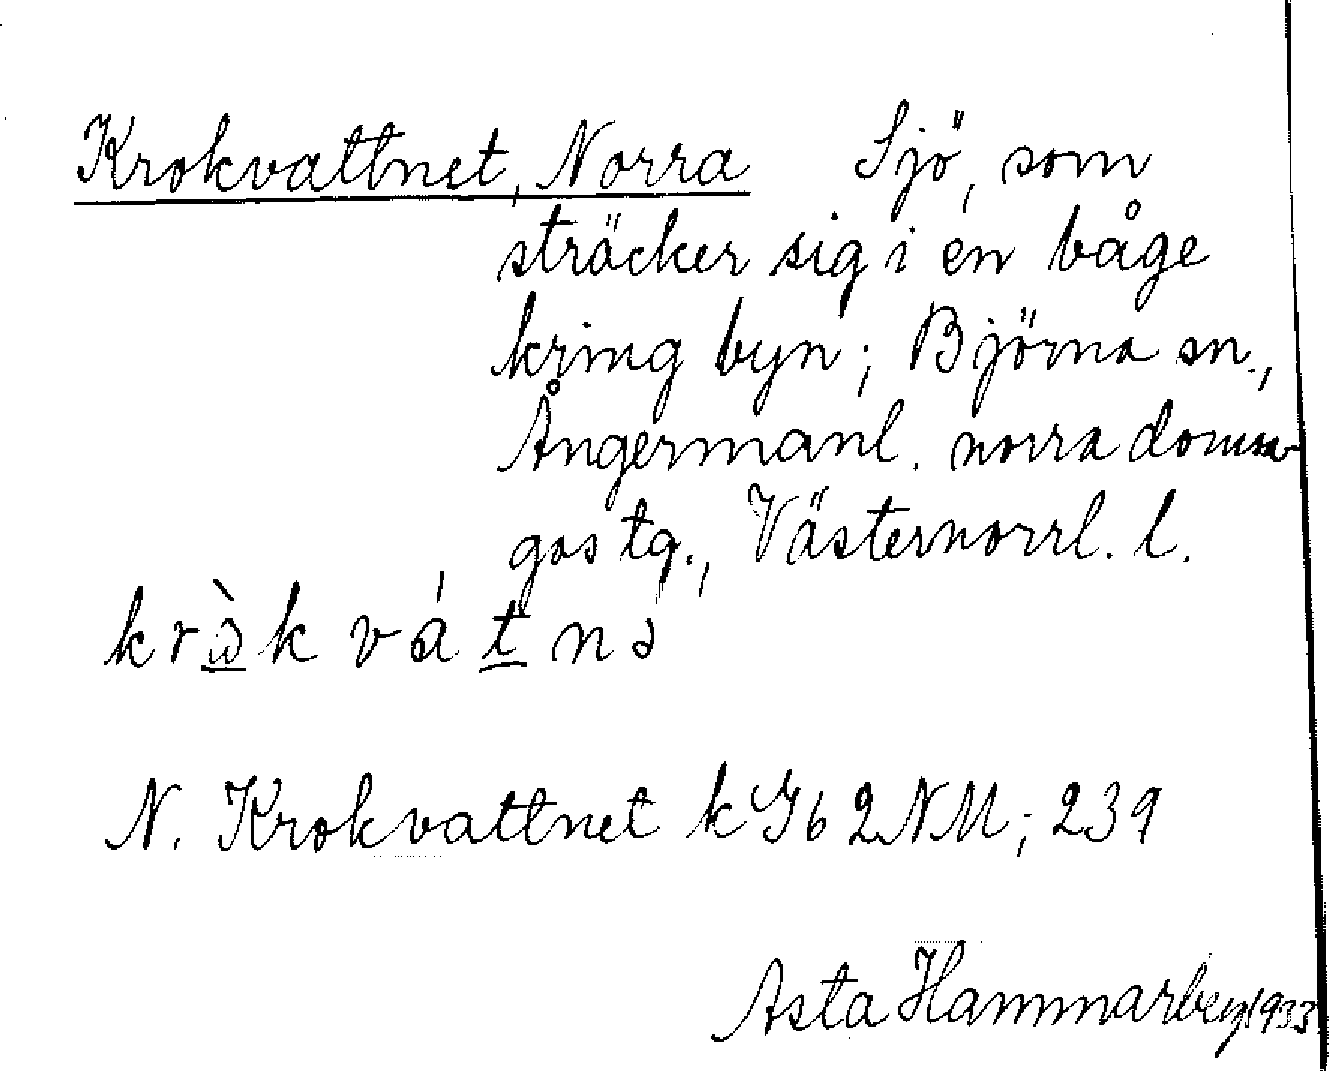 Krokvattnet, Norra Sjö, som
sträcker sig i en båge
kring byn; Björna sn.,
Ångermanl. norra domsa-
gas tg., Västernorrl. l.
krὼk vá t̲ nə̀
N. Krokvattnet k Gb 2 NM; 239
Asta Hammarberg 1933